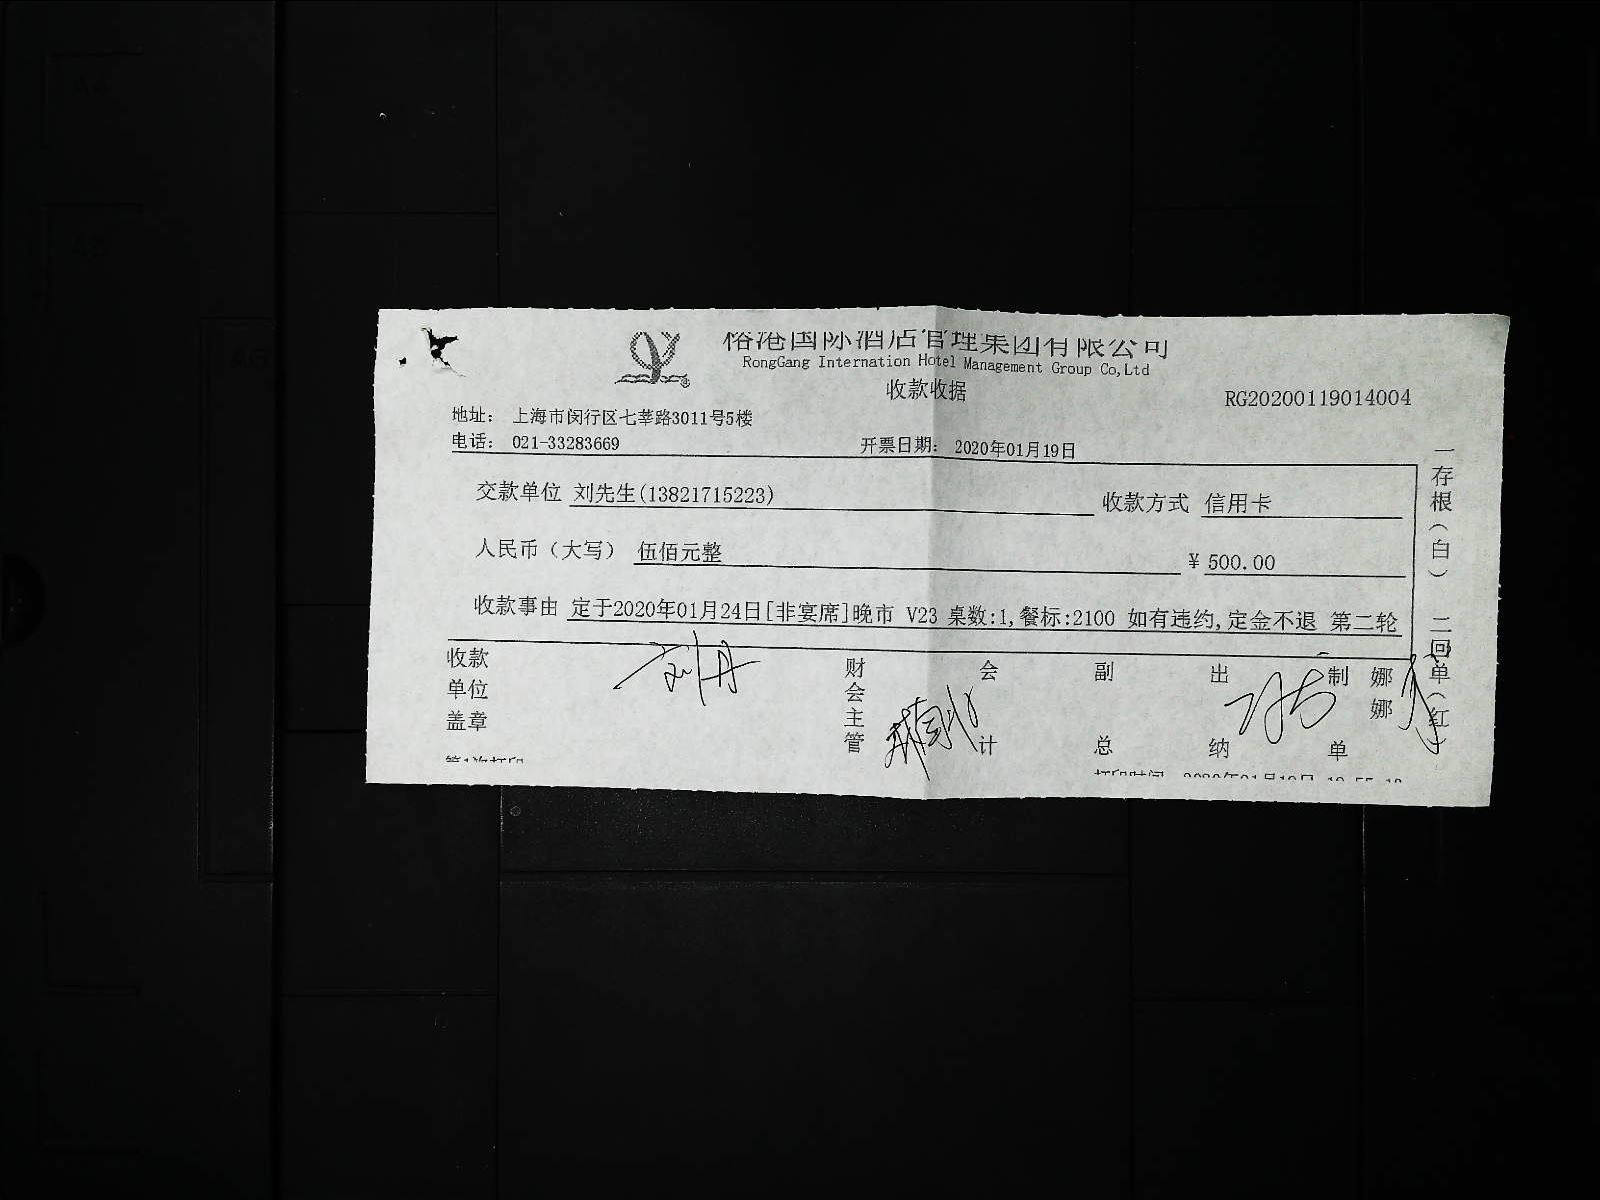 榕港国际酒店管理集团有限公司
RongGang Internation Hotel Management Group Co,Ltd
收款收据
RG20200119014004
地址： 上海市闵行区七莘路3011号5楼
电话： 021-33283669 开票日期： 2020年01月19日
交款单位 刘先生(13821715223) 收款方式 信用卡
人民币（大写） 伍佰元整 ¥ 500.00
收款事由 定于2020年01月24日[非宴席]晚市 V23 桌数:1,餐标:2100 如有违约,定金不退 第二轮
收款单位盖章 刘丹 财会主管 会计 副总 出纳 制单 娜娜
一存根（白） 二回单（红）
第1次打印
打印时间 2020年01月19日